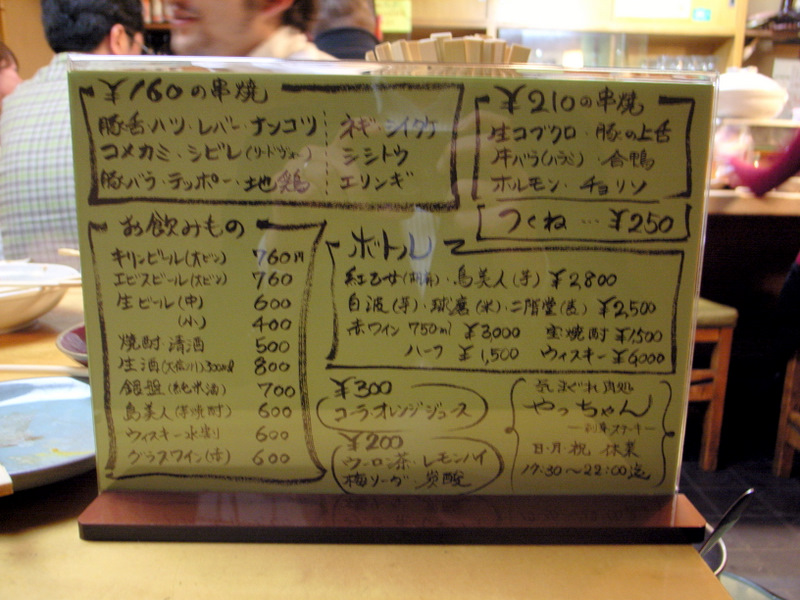 ¥160の串焼
豚舌・ハツ・レバー・ナンコツ
コメカミ・シビレ(リードヴォー)
豚バラ・テッポー・地鶏
ネギ・シイタケ
シシトウ
エリンギ
¥210の串焼
生コブクロ・豚の上舌
牛バラ(ハラミ)・合鴨
ホルモン・チョリソ
つくね…¥250
お飲みもの
キリンビール(大ビン) 760円
エビスビール(大ビン) 760
生ビール(中) 600
(小) 400
焼酎・清酒 500
生酒 300ml 800
銀盤(純米酒) 700
島美人(芋焼酎) 600
ウィスキー水割 600
グラスワイン(赤) 600
ボトル
紅乙女(胡麻)・島美人(芋) ¥2,800
白波(芋)・球磨(米)・二階堂(麦) ¥2,500
赤ワイン 750ml ¥3,000 宝焼酎 ¥1,500
ハーフ ¥1,500 ウィスキー ¥6,000
¥300
コーラ・オレンジジュース
¥200
ウーロン茶・レモンハイ
梅ソーダ 炭酸
気まぐれ肉処
やっちゃん
ステーキー
日・月・祝 休業
17:30～22:00迄